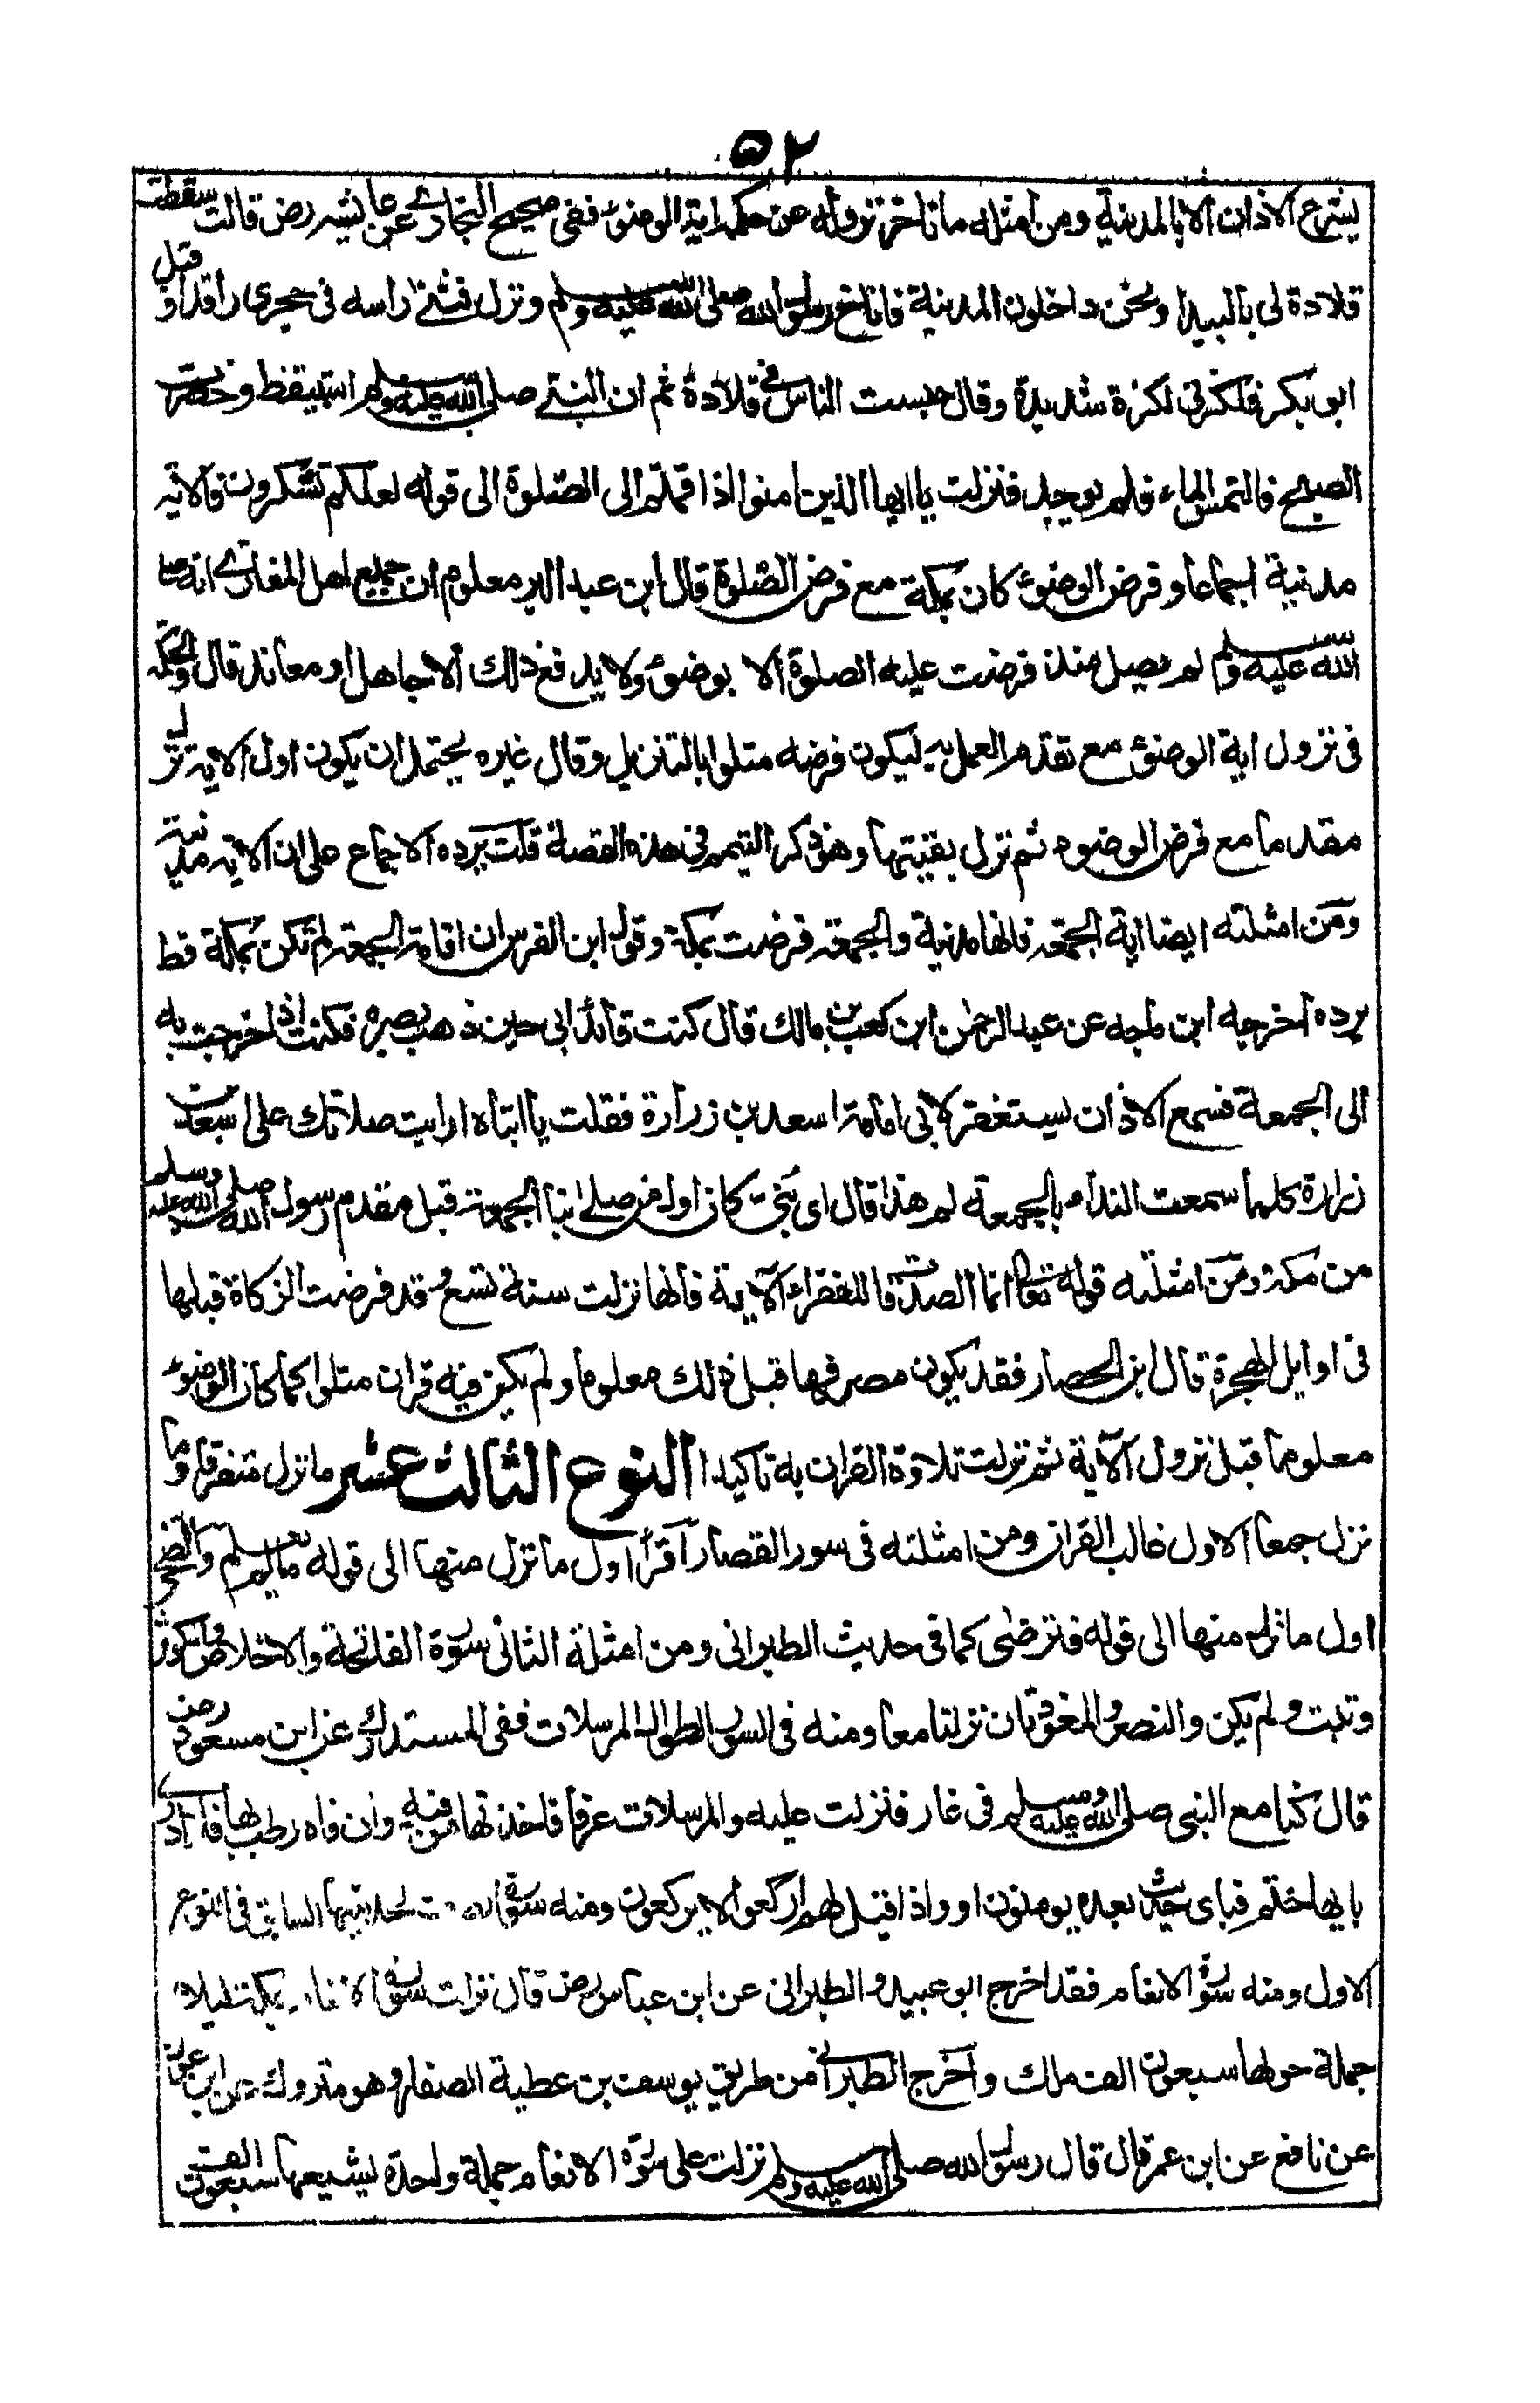 ٥٢
يشرع الاذان الا بالمدينة ومن امثله ما تاخر نزوله عن حكمه اية الوضوء ففي صحيح البخاري عن عايشه رض قالت سقطت
قلادة لى بالبيداء ونحن داخلون المدينة فاناخ رسول الله صلى الله عليه وسلم ونزل فثنى راسه فى حجرى راقدا و قبل
ابو بكر فلكزنى لكزة شديدة وقال حبست الناس فى قلادة ثم ان النبي صلى الله عليه وسلم استيقظ وحضرت
الصبح فالتمس الماء فلم يوجد فنزلت يا ايها الذين امنوا اذا قمتم الى الصلوة الى قوله لعلكم تشكرون فالايه
مدنية اجماعا وفرض الوضوء كان بمكة مع فرض الصلوة قال ابن عبد البر معلوم ان جميع اهل المغازي انه صلى
الله عليه وسلم لم يصل منذ فرضت عليه الصلوة الا بوضوء ولا يدفع ذالك الا جاهل او معاند قال والحكمه
فى نزول اية الوضوء مع تقدم العمل به ليكون فرضه متلوا بالتنزيل وقال غيره يحتمل ان يكون اول الايه نزل
مقدما مع فرض الوضوء ثم نزل بقيتها وهو ذكر التيمم فى هذه القصة قلت يرده الاجماع على ان الايه مدنية
ومن امثلته ايضا اية الجمعه فانها مدنية والجمعة فرضت بمكة وقول ابن الفرس ان اقامة الجمعه لم تكن بمكة قط
يرده اخرجه ابن ماجه عن عبد الرحمن ابن كعب بن مالك قال كنت قائد ابى حين ذهب بصره فكنت اذا خرجت به
الى الجمعة فسمع الاذان يستغفر لابى امامة اسعد بن زرارة فقلت يا ابتاه ارايت صلاتك على اسعد بن
زرارة كلما سمعت النداء بالجمعة لم هذا قال اى بنى كان اول من صلى بنا الجمعة قبل مقدم رسول الله صلى الله عليه وسلم
من مكة ومن امثلته قوله تعالى انما الصدقات للفقراء الآية فانها نزلت سنة تسع وقد فرضت الزكاة قبلها
فى اوايل الهجرة قال ابن الحصار فقد يكون مصرفها قبل ذلك معلوما ولم يكن فيه قران متلوا كما كان الوضوء
معلوما قبل نزول الآية ثم نزلت تلاوة القران به تاكيدا النوع الثالث عشر ما نزل متفرقا وما
نزل جمعا الاول غالب القران ومن امثلته فى سور القصار اقرأ اول ما نزل منها الى قوله ما لم يعلم والضحى
اول ما نزل منها الى قوله فترضى كما فى حديث الطبرانى ومن امثلة الثانى سورة الفاتحة والاخلاص والكوثر
وتبت ولم يكن والنصر والمعوذتان نزلتا معا ومنه فى السور الطوال المرسلات ففى المستدرك عن ابن مسعود رض
قال كنا مع النبى صلى الله عليه وسلم فى غار فنزلت عليه والمرسلات عرفا فاخذتها من فيه وان فاه رطب بها فلا ادرى
بايها ختم فباى حديث بعده يومنون او واذا قيل لهم اركعوا لا يركعون ومنه سورة لحديثها السابق فى النوع
الاول ومنه سورة الانعام فقد اخرج ابو عبيد والطبرانى عن ابن عباس رض قال نزلت سورة الانعام بمكة ليلا
جملة حولها سبعون الف ملك واخرج الطبرانى من طريق يوسف بن عطية الصفار وهو متروك عن ابن عون
عن نافع عن ابن عمر قال قال رسول الله صلى الله عليه وسلم نزلت على سورة الانعام جملة واحدة يشيعها سبعون الف